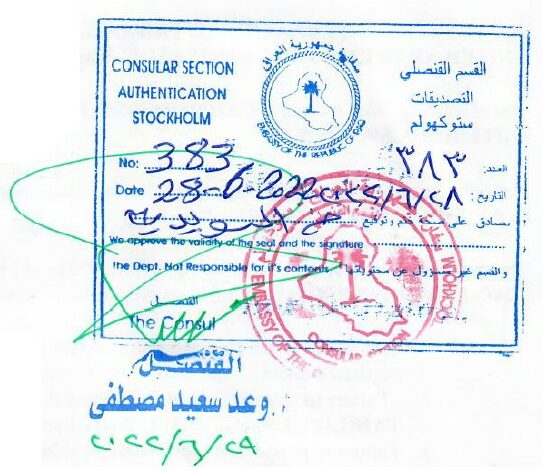 سفارة جمهورية العراق
EMBASSY OF THE REPUBLIC OF IRAQ
CONSULAR SECTION
AUTHENTICATION
STOCKHOLM
القسم القنصلي
التصديقات
ستوكهولم
No: 383
العدد: ٣٨٣
Date 28-6-2022
التاريخ: ٢٠٢٢/٦/٢٨
نصادق على صحة ختم وتوقيع السويدية
We approve the validity of the seal and the signature
The Dept. Not Responsible for it's contents
والقسم غير مسؤول عن محتوياتها
القنصل
The Consul
EMBASSY OF THE
CONSULAR SECTION
STOCKHOLM
القنصل
د. وعد سعيد مصطفى
٢٠٢٢/٦/٢٩